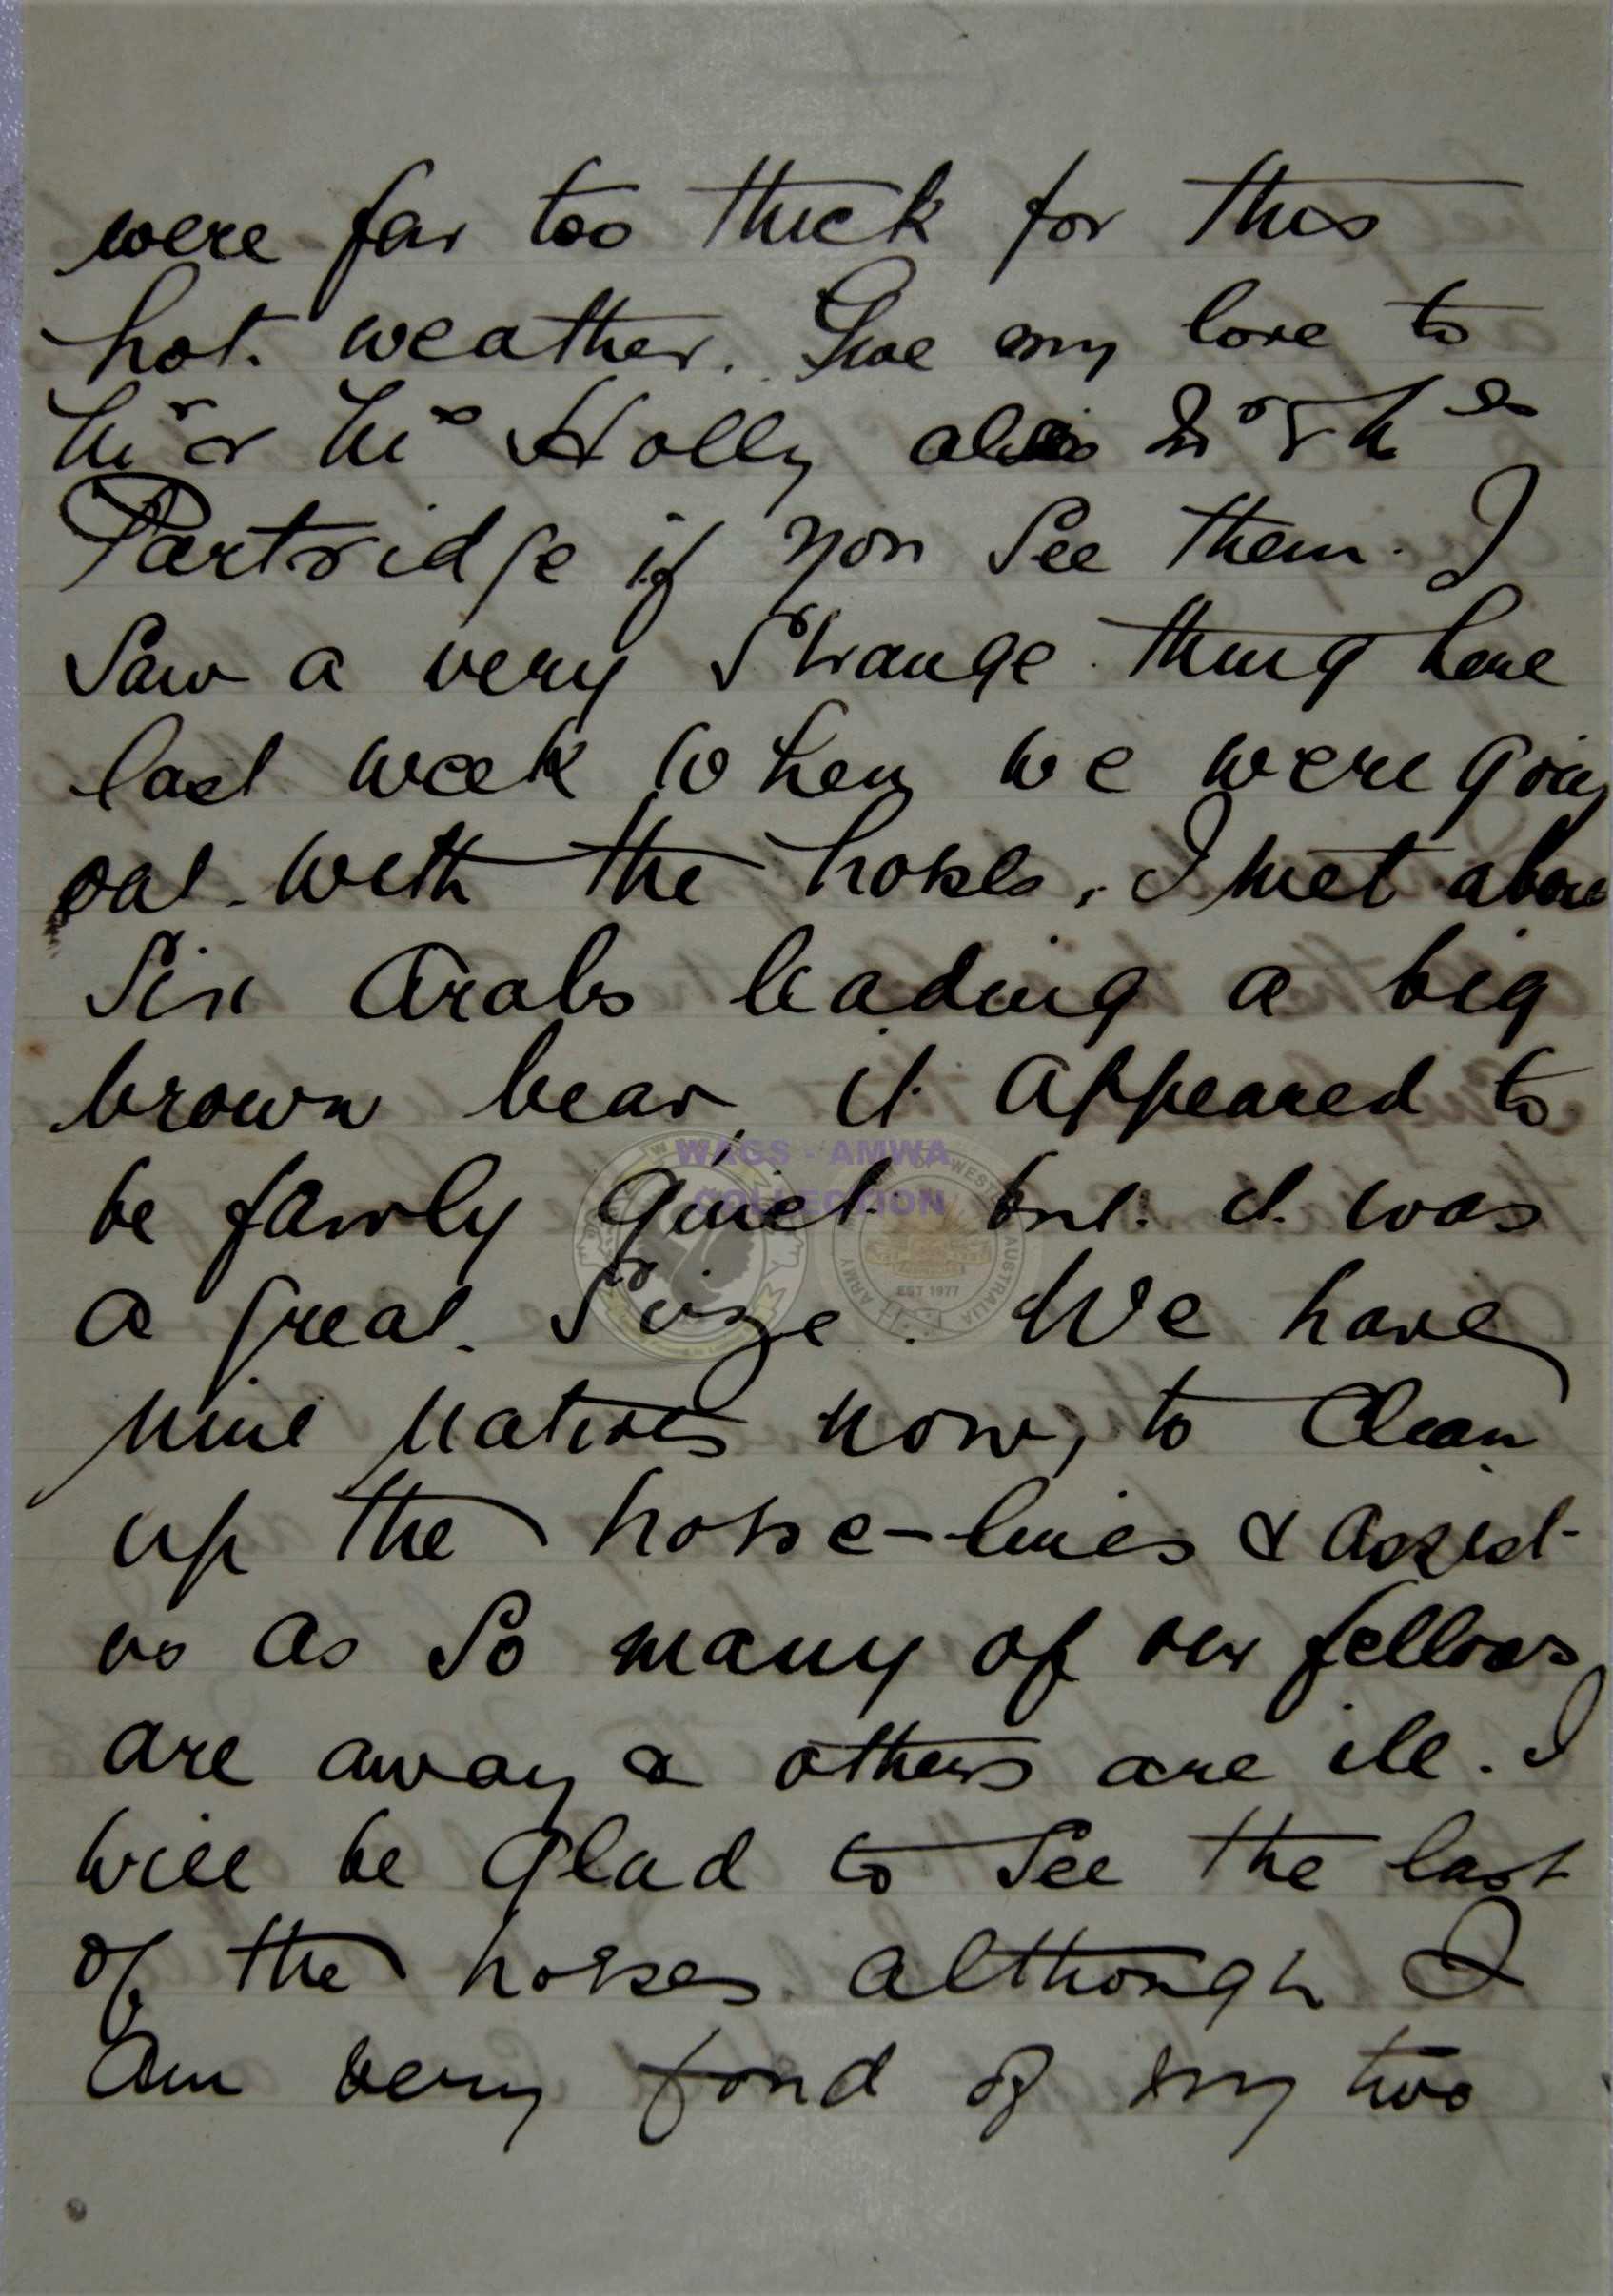 were far too thick for this
hot weather. Give my love to
Mr & Mrs Holly also Dr & Mrs
Partridge if you see them. I
saw a very strange thing here
last week when we were going
out with the horses, I met about
six Arabs leading a big
brown bear, it appeared to
be fairly quiet but it was
WAGS - AMWA
COLLECTION
EST 1977
a great size. We have
nine natives now, to clean
up the horse-lines & assist
us as so many of our fellows
are away & others are ill. I
will be glad to see the last
of the horses although I
am very fond of my two